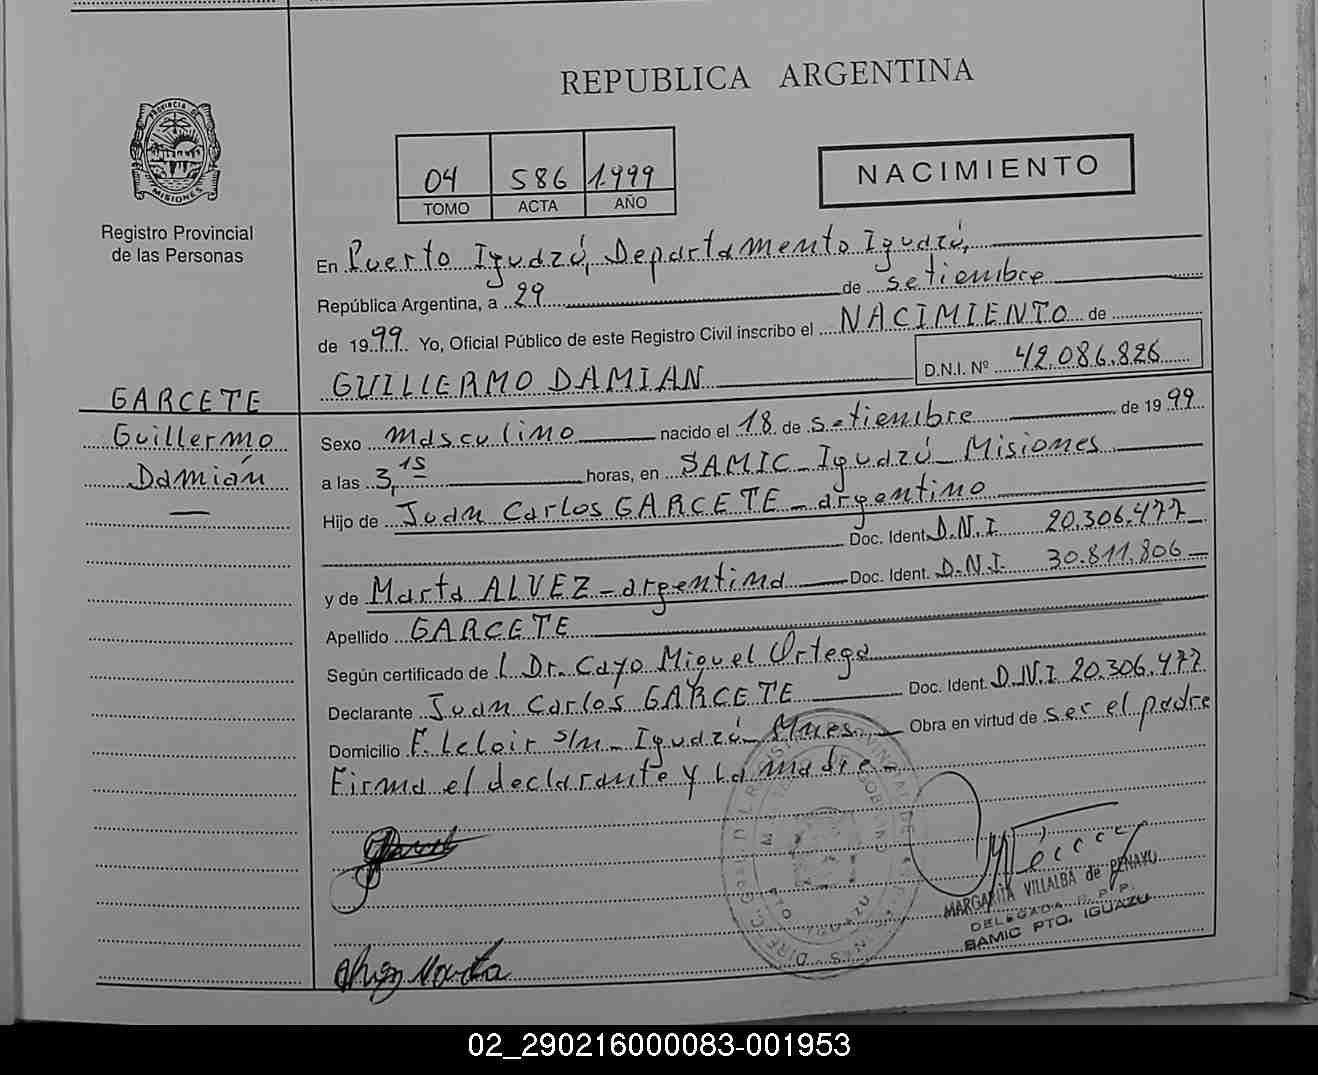 REPUBLICA ARGENTINA
PROVINCIA DE
MISIONES
Registro Provincial
de las Personas
04 586 1.999
TOMO ACTA AÑO
NACIMIENTO
En Puerto Iguazú, Departamento Iguazú,
República Argentina, a 29 de setiembre
de 1999. Yo, Oficial Público de este Registro Civil inscribo el NACIMIENTO de
GUILLERMO DAMIAN D.N.I. Nº 42.086.826
GARCETE
Guillermo
Damián
Sexo masculino nacido el 18 de setiembre de 1999
a las 3,15 horas, en SAMIC - Iguazú - Misiones
Hijo de Juan Carlos GARCETE - argentino
Doc. Ident. D.N.I 20.306.477
y de Marta ALVEZ - argentina Doc. Ident. D.N.I. 30.811.806
Apellido GARCETE
Según certificado de Dr. Cayo Miguel Ortega
Declarante Juan Carlos GARCETE Doc. Ident. D.N.I 20.306.477
Domicilio F. Leloir s/n - Iguazú - Mnes. Obra en virtud de ser el padre
Firma el declarante y la madre -
MARGARITA VILLALBA de PENAYU
DELEGADA R.P.P.
SAMIC PTO. IGUAZU
Marta
02_290216000083-001953